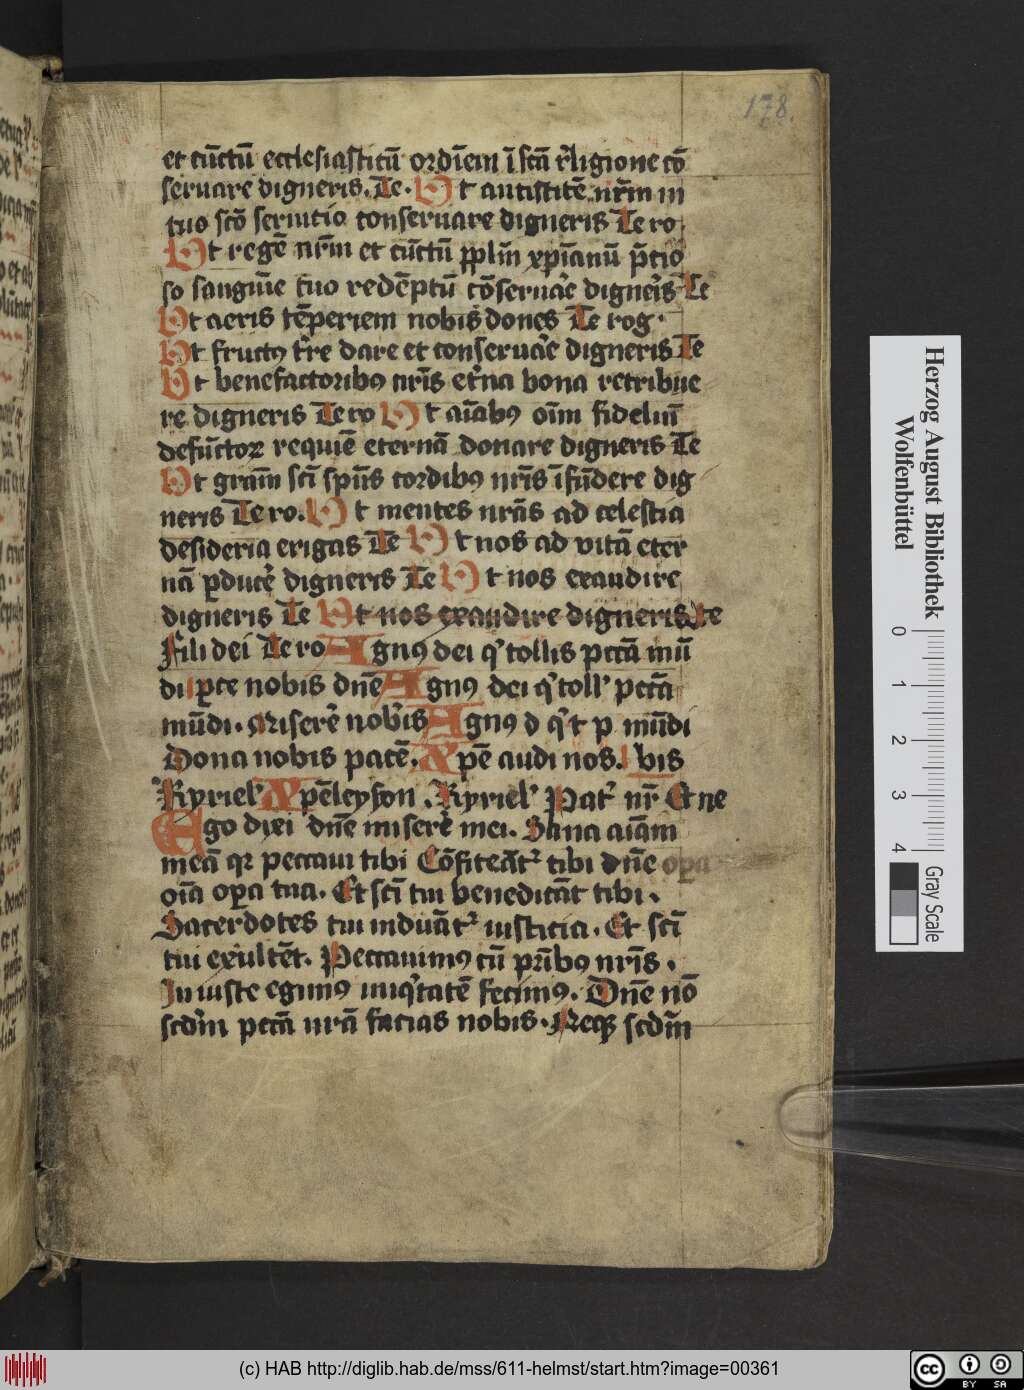 178.
et cūctū ecclesiasticū ordīem ī scā r̓ligione cō
seruare digneris. Te. Ut antistitē nr̄m in
tuo scō seruitio conseruare digneris Te ro
Ut regē nr̄m et cūctū pplm̄ xp̄ianū p̄tio
so sanguīe tuo redēptū cōseruar̓e digneris Te
Ut aeris tēperiem nobis dones Te rog.
Ut fructꝰ tr̓re dare et conseruar̓e digneris Te
Ut benefactoribꝰ nr̄is et̓na bona retribue
re digneris Te ro Ut aīabꝰ oīm fideliū
defūctoꝝ requiē eternā donare digneris Te
Ut grām̄ scī spūs cordibꝰ nr̄is īfūdere dig
neris Te ro. Ut mentes nrās ad celestia
desideria erigas Te Ut nos ad vitā eter
nā ꝑducer̓ digneris Te Ut nos exaudire
digneris Te Ut nos exaudire digneris Te
Fili dei Te ro Agnꝰ dei q̓ tollis pctā mū
di ꝑce nobis dn̄e Agnꝰ dei q̓ toll̓ pctā
mūdi. Miserer̓e nob̓is Agnꝰ d q̓ t p mūdi
Dona nobis pacē. Xp̄e audi nos. bis
Kyriel̓ Xp̄eleyson. Kyriel̓ Pat̓ nr̄ Et ne
Ego dixi dn̄e miserer̓e mei. Sana aīam
meā qꝛ peccaui tibi Cōfiteāt̓ tibi dn̄e oꝑa
oīa oꝑa tua. Et scī tui benedicāt tibi.
Sacerdotes tui induāt̓ iusticia. Et scī
tui exultēt. Peccauimꝰ cū pr̄ibꝰ nr̄is.
Iniuste egimꝰ iniq̓tatē fecimꝰ. Dn̄e nō
scdm̄ pctā nrā facias nobis. Neqꝫ scdm̄
Herzog August Bibliothek
Wolfenbüttel
0 1 2 3 4
Gray Scale
(c) HAB http://diglib.hab.de/mss/611-helmst/start.htm?image=00361
cc BY SA